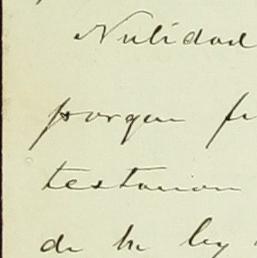 Nulidad
porque fu
testaron
de la ley